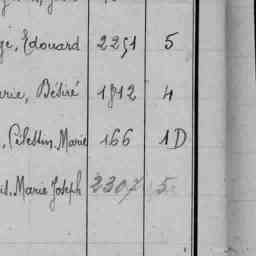 gé, Edouard 2251 5
rie, Désiré 1812 4
, Célestin, Marie 166 1D
is, Marie Joseph 2307 5